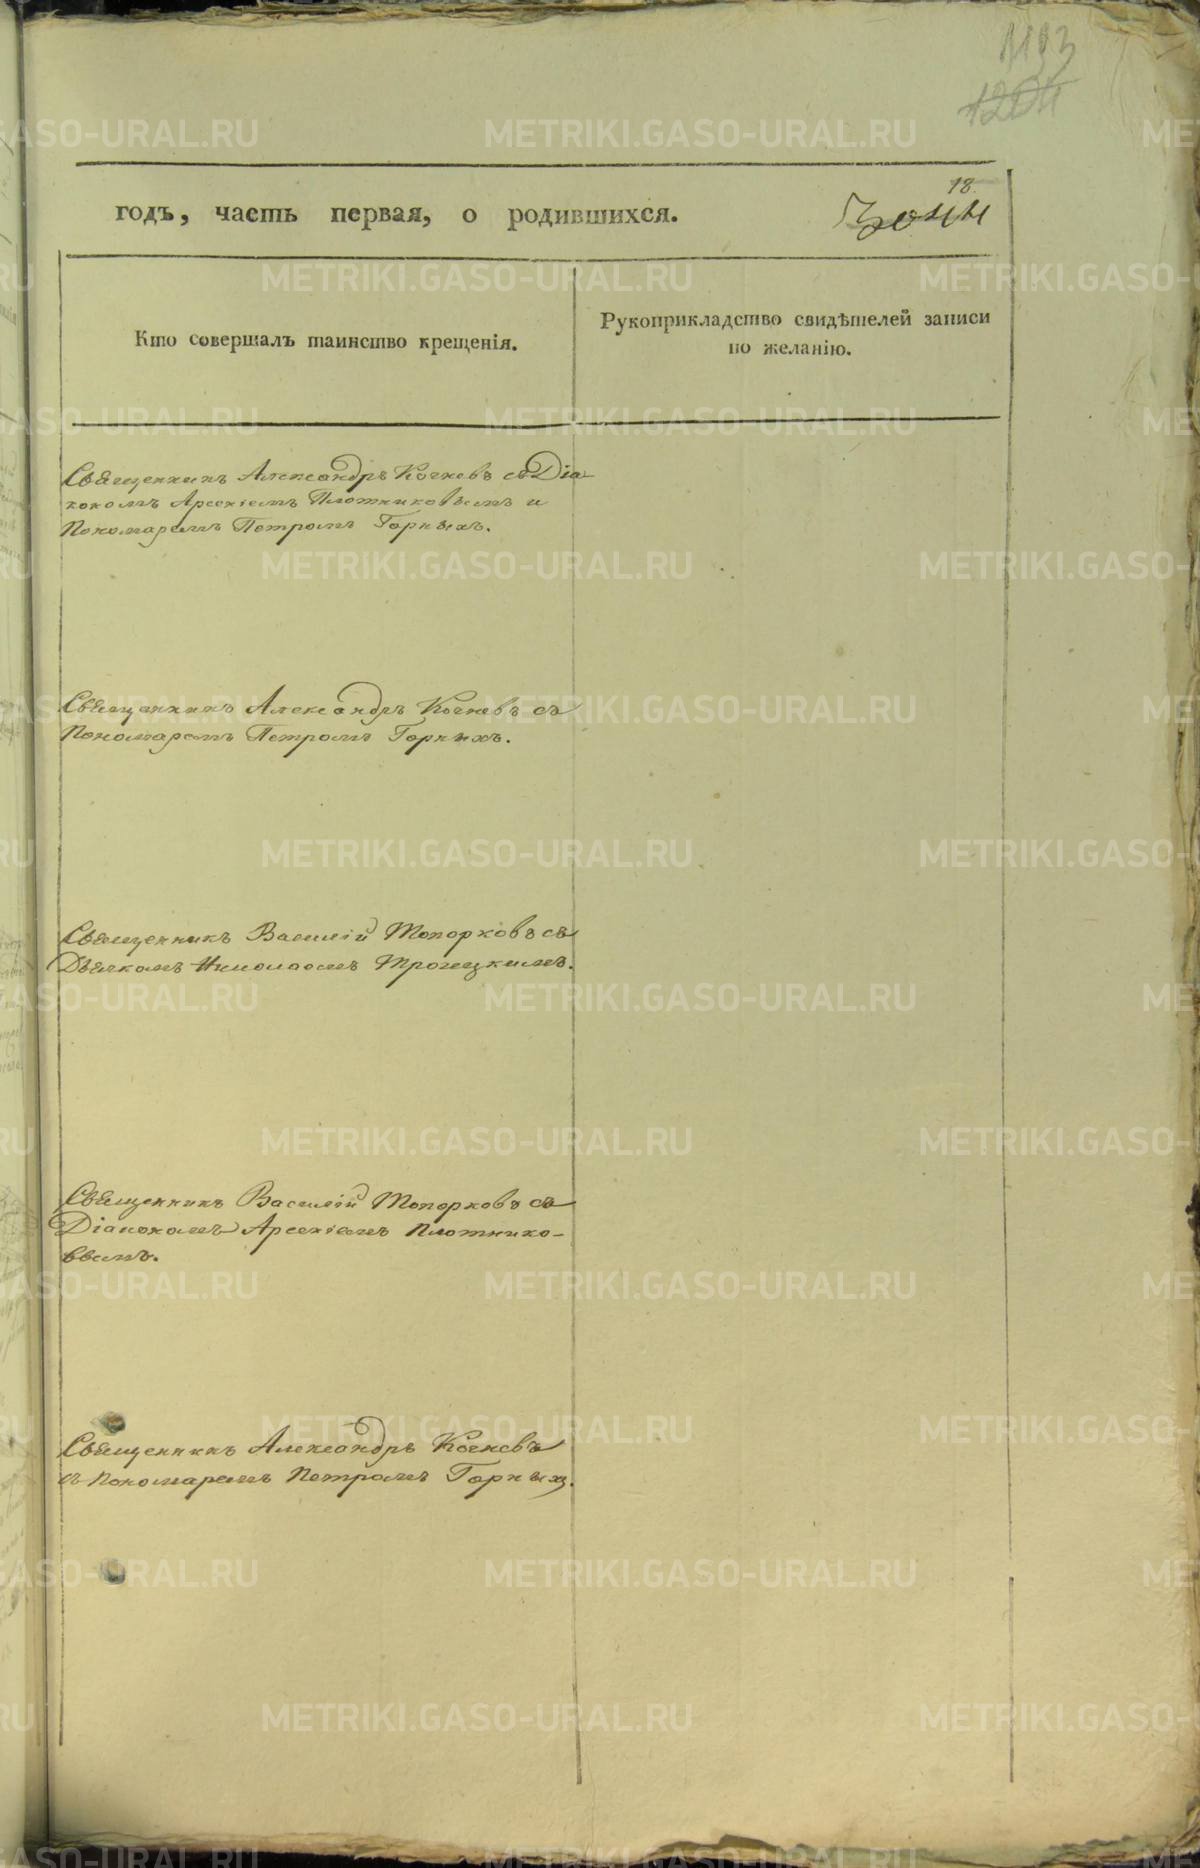 1193
1204
18
годъ, часть первая, о родившихся.
Кто совершалъ таинство крещенія.
Рукоприкладство свидѣтелей записи
по желанію.
Священникъ Александръ Кочневъ съ Діа
кономъ Арсеніемъ Плотниковымъ и
Пономаремъ Петромъ Горныхъ.
Священникъ Александръ Кочневъ съ
Пономаремъ Петромъ Горныхъ.
Священникъ Василій Топорковъ съ
Дьячкомъ Николаемъ Троицкимъ.
Священникъ Василій Топорковъ съ
Діакономъ Арсеніемъ Плотнико-
вымъ.
Священникъ Александръ Кочневъ
съ Пономаремъ Петромъ Горныхъ.
METRIKI.GASO-URAL.RU